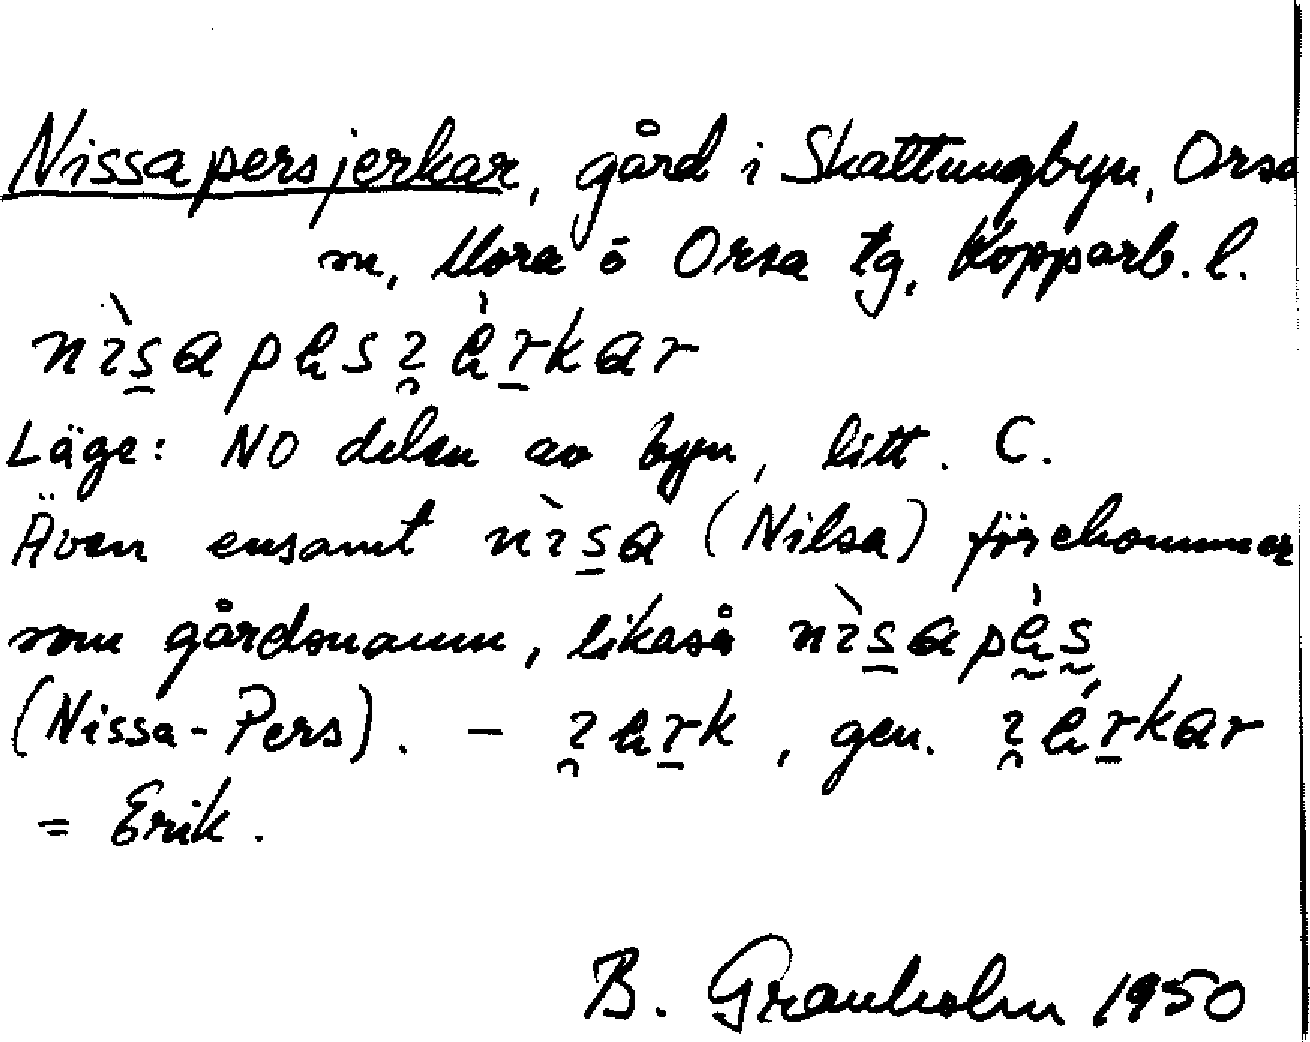 Nissapersjerkar, gård i Skattungbyn, Orsa
sn, Mora o Orsa tg, Kopparb. l.
Läge: NO delen av byn, litt. C.
Även ensamt nı̀s̲a (Nilsa) förekommer
som gårdsnamn, likaså
(Nissa-Pers). - , gen.
= Erik.
B. Granholm 1950